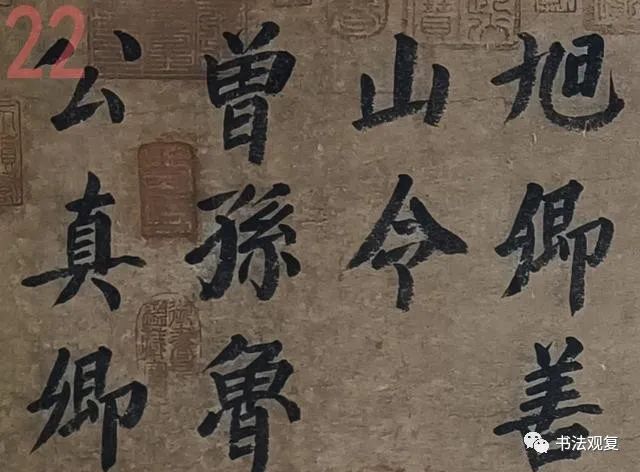 旭卿善
山令
曾孫魯
公真卿
22
书法观复